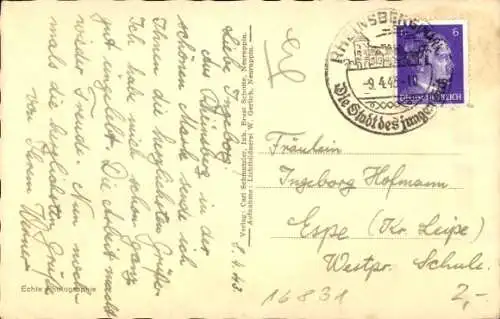 8.4.43.
Liebe Ingeborg!
Aus Rheinsberg in der
schönen Mark sende ich
Ihnen die herzlichsten Grüße.
Ich habe mich schon ganz
gut eingelebt. Die Arbeit macht
wieder Freude. Nun noch-
mals die herzlichsten Grüße
von Ihrem Werner.
Echte Photographie
Verlag: Carl Schünemann, Inh. Franz Schultze, Neuruppin.
Aufnahme: Lichtbildnerei W. Gerlach, Neuruppin.
RHEINSBERG
-9.4.43.-10
Die Stadt des jungen
6
REICH
Fräulein
Ingeborg Hofmann
Espe (Kr. Leipe)
Westpr. Schule.
16831
2,-